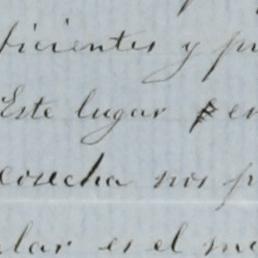 ficientes y p
Este lugar en
cosecha nos p
lar es el m